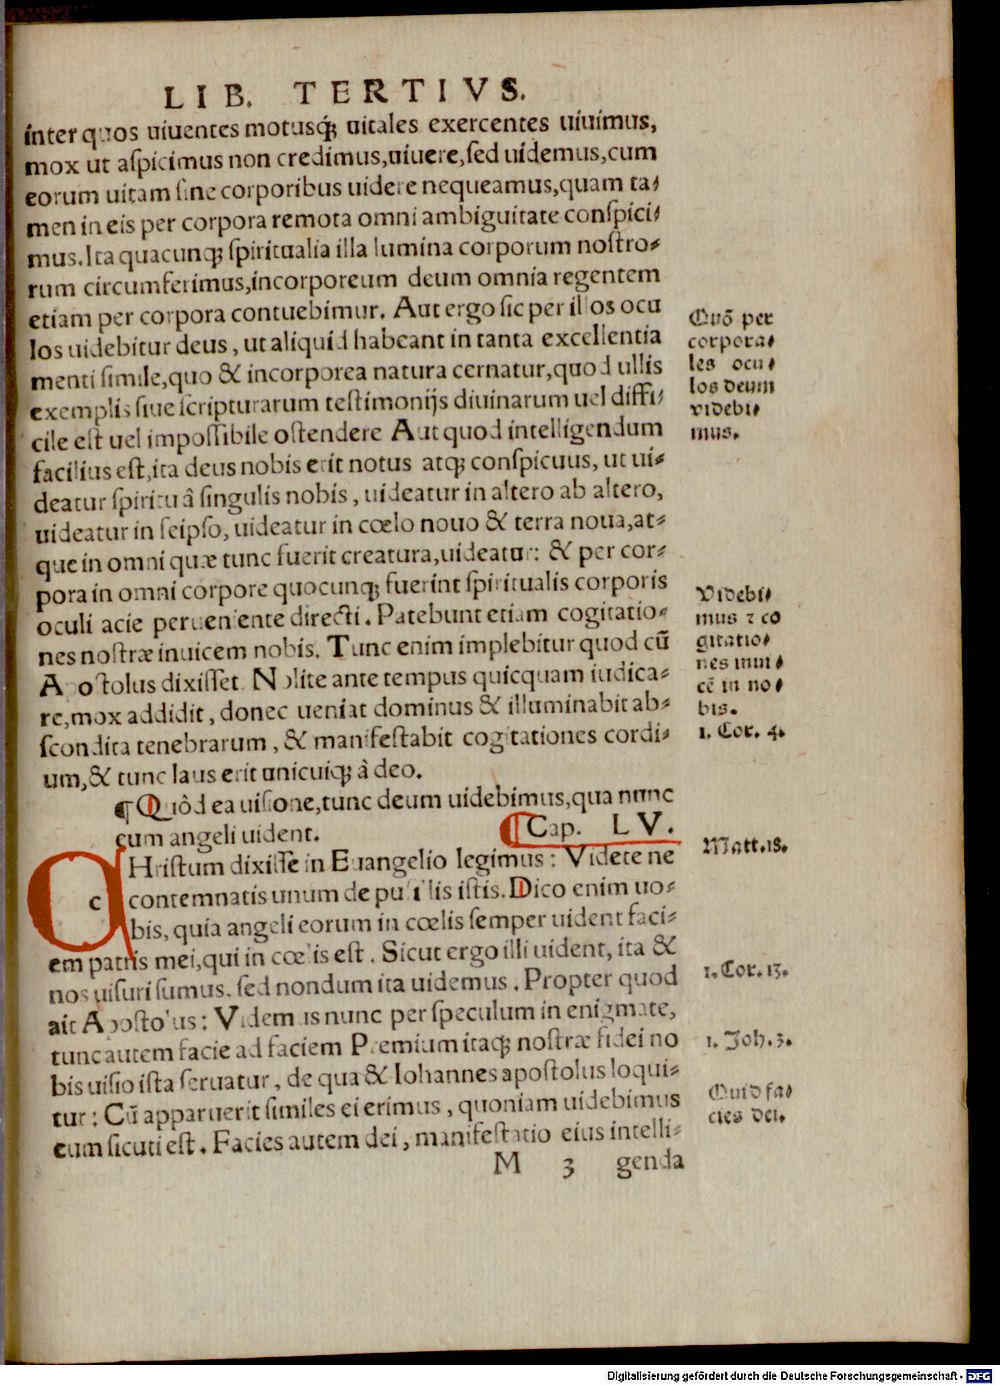 LIB. TERTIVS.
inter quos uiuentes motusq́; uitales exercentes uiuimus,
mox ut aſpicimus non credimus,uiuere,ſed uidemus,cum
eorum uitam ſine corporibus uidere nequeamus,quam ta⸗
men in eis per corpora remota omni ambiguitate conſpici⸗
mus.Ita quacunq; ſpiritualia illa lumina corporum noſtro⸗
rum circumferimus,incorporeum deum omnia regentem
etiam per corpora contuebimur. Aut ergo ſic per illos ocu
los uidebitur deus, ut aliquid habeant in tanta excellentia
menti ſimile,quo & incorporea natura cernatur,quod ullis
exemplis ſiue ſcripturarum teſtimonijs diuinarum uel diffi⸗
cile eſt uel impoſſibile oſtendere Aut quod intelligendum
facilius eſt,ita deus nobis erit notus atq; conſpicuus, ut ui⸗
deatur ſpiritu â ſingulis nobis, uideatur in altero ab altero,
uideatur in ſeipſo, uideatur in cœlo nouo & terra noua,at⸗
que in omni quæ tunc fuerit creatura,uideatur: & per cor⸗
pora in omni corpore quocunq; fuerint ſpiritualis corporis
oculi acie perueniente directi. Patebunt etiam cogitatio⸗
nes noſtræ inuicem nobis. Tunc enim implebitur quod cũ
Apoſtolus dixiſſet Nolite ante tempus quicquam iudica⸗
re,mox addidit, donec ueniat dominus & illuminabit ab⸗
ſcondita tenebrarum, & manifeſtabit cogitationes cordi⸗
um,& tunc laus erit unicuiq; â deo.
¶ Quôd ea uiſione,tunc deum uidebimus,qua nunc
cum angeli uident. ¶ Cap. LV.
C c Hriſtum dixiſſe in Euangelio legimus: Videte ne
contemnatis unum de puſillis iſtis. Dico enim uo⸗
bis, quia angeli eorum in cœlis ſemper uident faci⸗
em patris mei,qui in cœlis eſt. Sicut ergo illi uident, ita &
nos uiſuri ſumus. ſed nondum ita uidemus. Propter quod
ait Apoſtolus: Videmus nunc per ſpeculum in enigmate,
tunc autem facie ad faciem Premium itaq; noſtræ fidei no
bis uiſio iſta ſeruatur, de qua & Iohannes apoſtolus loqui⸗
tur: Cũ apparuerit ſimiles ei erimus, quoniam uidebimus
eum ſicuti eſt. Facies autem dei, manifeſtatio eius intelli⸗
M 3 genda
Quõ per
corpora⸗
les ocu⸗
los deum
videbi⸗
mus.
Videbi⸗
mus ⁊ co
gitatio⸗
nes inui⸗
cẽ in no⸗
bis.
1. Cor. 4.
Matt.18.
1. Cor. 13.
1. Joh. 3.
Quid fa⸗
cies dei.
Digitalisierung gefördert durch die Deutsche Forschungsgemeinschaft - DFG